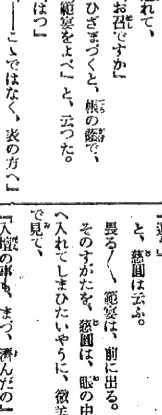 れて、
『お召ですか』
ひざまづくと、帳の蔭で、
『範宴をよべ』と、云つた。
『はつ』
『――こゝではなく、表の方へ』
と、慈圓は云ふ。
畏る／＼、範宴は、前に出る。
そのすがたを、慈圓は、眼の中
へ入れてしまひたいやうに、微笑
で見て、
『入壇の事も、まづ、濟んだの』